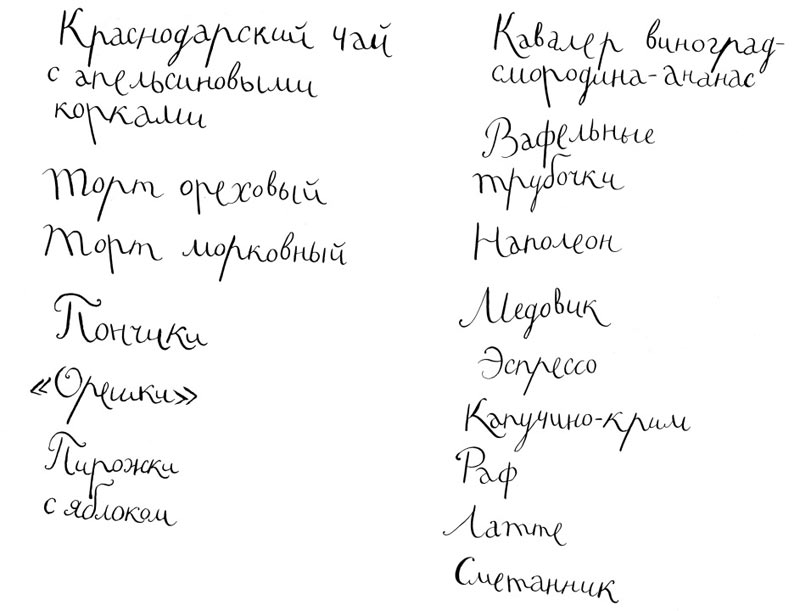 Краснодарский чай
с апельсиновыми
корками
Торт ореховый
Торт морковный
Пончики
«Орешки»
Пирожки
с яблоком
Кавалер виноград-
смородина-ананас
Вафельные
трубочки
Наполеон
Медовик
Эспрессо
Капучино-крим
Раф
Латте
Сметанник